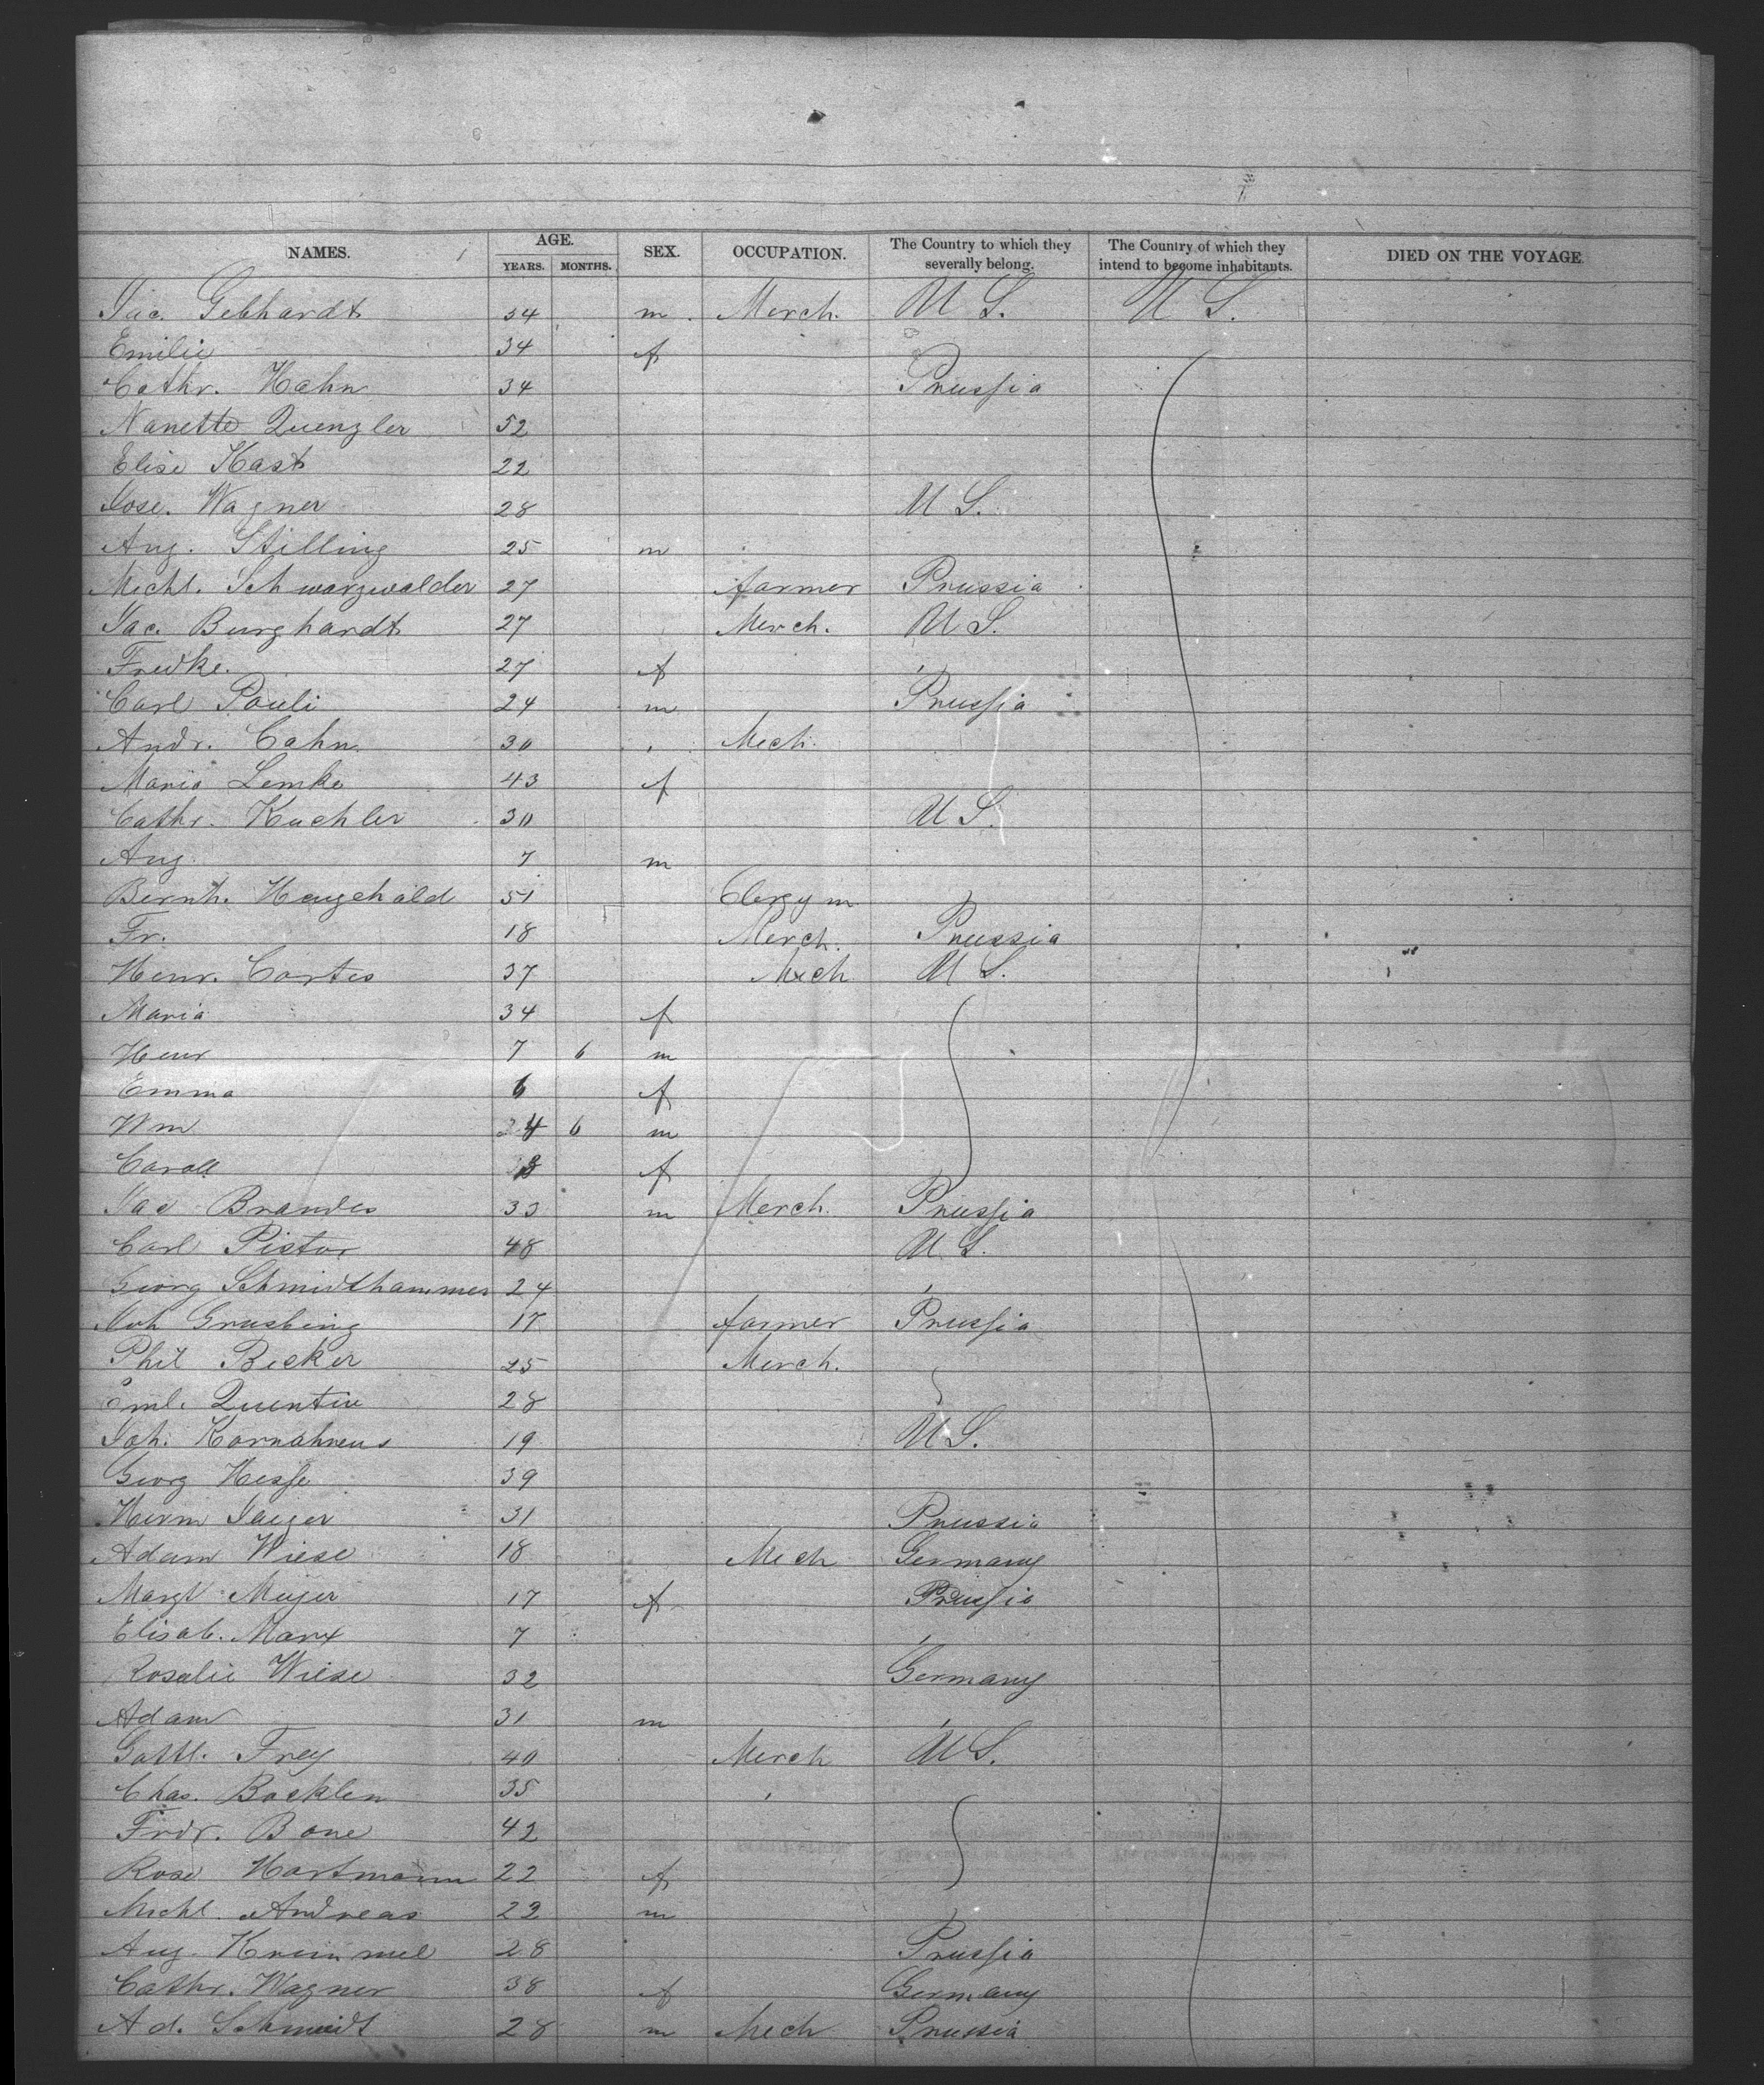 NAMES. AGE. SEX. OCCUPATION. The Country to which they severally belong. The Country of which they intend to become inhabitants. DIED ON THE VOYAGE.
YEARS. MONTHS.
Jac. Gebhardt 54 m Merch. U S. U S.
Emilie 34 f
Cathr. Hahn 34 Prussia
Nanette Quenzler 52
Elise Kast 22
Jose. Wagner 28 U S.
Aug. Stilling 25 m
Michl. Schwarzwalder 27 farmer Prussia
Jac. Burghardt 27 Merch. U S.
Fredke. 27 f
Carl Pauli 24 m Prussia
Andr. Cahn 30 Mech.
Marie Lemke 43 f
Cathr. Kuchler 30 U S.
Aug. 7 m
Bernh. 51 Clergym
Fr. 18 Merch. Prussia
Henr. Cortes 37 Mech U S.
Maria 34 f
Henr 7 6 m
Emma 6 f
Wm 4 6 m
Caroll 3 f
Jac Brandes 33 m Merch. Prussia
Carl Pistor 48 U S.
Georg Schmidthammer 24
Joh Grusbing 17 farmer Prussia
Phil Becker 25 Merch.
Eml. Quentin 28
Joh. Kornahrens 19 U S.
Georg Hesse 39
Herm Jaeger 31 Prussia
Adam Wiese 18 Mech Germany
Margt Meyer 17 f Prussia
Elisab. Marx 7
Rosalie Wiese 32 Germany
Adam 31 m
Gottl. Frey 40 Merch U S.
Chas. Bocklen 35
Frdr. Bone 42
Rose Hartmann 22 f
Michl. Andreas 22 m
Aug. Krummel 28 Prussia
Cathr. Wagner 38 f Germany
Ad. Schmidt 28 m Mech Prussia